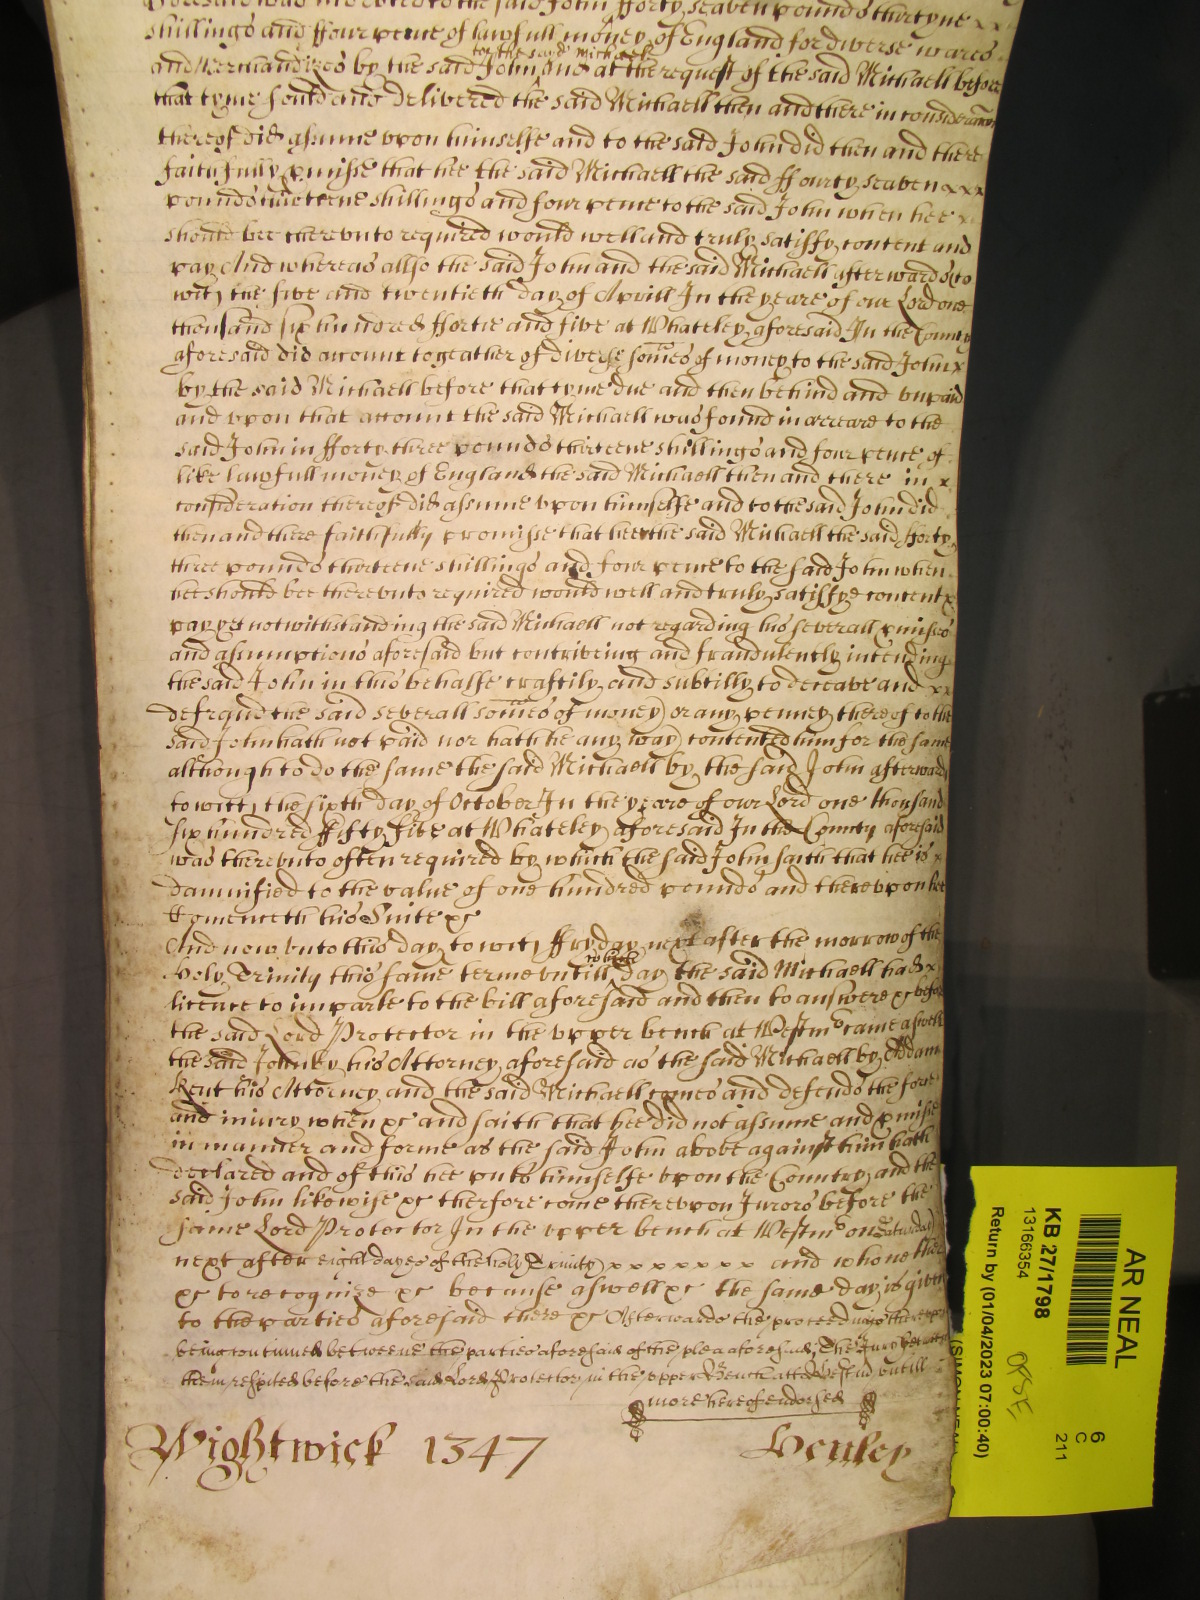 aforesaid was indebted to the said John fforty seaven pounds thirteene x x
shillings and ffour pence of lawfull money of England for diverse wares
to the said Michaell
and Merchandizes by the said John and at the request of the said Michaell before
that tyme sould and delivered the said Michaell then and there in consideracon
thereof did assume vpon himselfe and to the said John did then and there
faithfully pmisse that hee the said Michaell the said ffourty seaven x x x
pounds thirteene shillings and four pence to the said John when hee x
should bee therevnto required would well and truly satisfy content and
pay And whereas allso the said John and the said Michaell afterwards to
witt the five and twentieth day of Aprill In the yeare of our Lord one
thousand six hundred ffortie and five at Whateley aforesaid In the County
aforesaid did account togeather of diverse somes of money to the said John x
by the said Michaell before that tyme due and then behind and vnpaid
and vpon that account the said Michaell was found in arreare to the
said John in fforty three pounds thirteene shillings and four pence of
like lawfull money of England the said Michaell then and there in x
consideration thereof did assume vpon himselfe and to the said John did
then and there faithfully promisse that hee the said Michaell the said fforty
three pounds thirteene shillings and four pence to the said John when
hee should bee therevnto required would well and truly satisfye content &
pay yet notwithstanding the said Michaell not regarding his severall pmises
and assumptions aforesaid but contriveing and fraudulently intending
the said John in this behalfe craftily and subtilly to deceave and x x
defraud the said severall somes of money or any penney thereof to the
said John hath not paid nor hath he any way contented him for the same
although to do the same the said Michaell by the said John afterward
to witt the sixth day of October In the yeare of our Lord one thousand
six hundred ffifty five at Whateley aforesaid In the County aforesaid
was therevnto often required by which the said John saith that hee is x
damnified to the value of one hundred pounds and therevpon hee
Comenceth his Suite &c
And now vnto this day to witt ffryday next after the morrow of the
to which
holy Trinity this same terme vntill day the said Michaell had x
licence to imparle to the bill aforesaid and then to answere &c before
the said Lord Protector in the vpper bench at Westmr came aswell
the said John by his Attorney aforesaid as the said Michaell by Addam
Kent his Attorney and the said Michaell comes and defends the force
and iniury when &c and saith that hee did not assume and pmise
in manner and forme as the said John above against him hath
declared and of this hee puts himselfe vpon the Country and the
said John likewise &c therfore come therevpon Jurors before the
same Lord Protector In the vpper bench at Westmr on Saturday
next after eight dayes of the holy Trinity x x x x x x x and who neither
&c to recognize &c because aswell &c the same day is given
to the parties aforesaid there &c Afterwards the proceedings therevpon
being continued betweene the parties aforesaid of the plea aforesaid, The Jury betweene
them respited before the said Lord Protector in the vpper Bench att Westmr vntill
more hereof endorsed
Wightwick 1347 Henley
AR NEAL
6
C
211
KB 27/1798
13166354
Return by (01/04/2023 07:00:40)